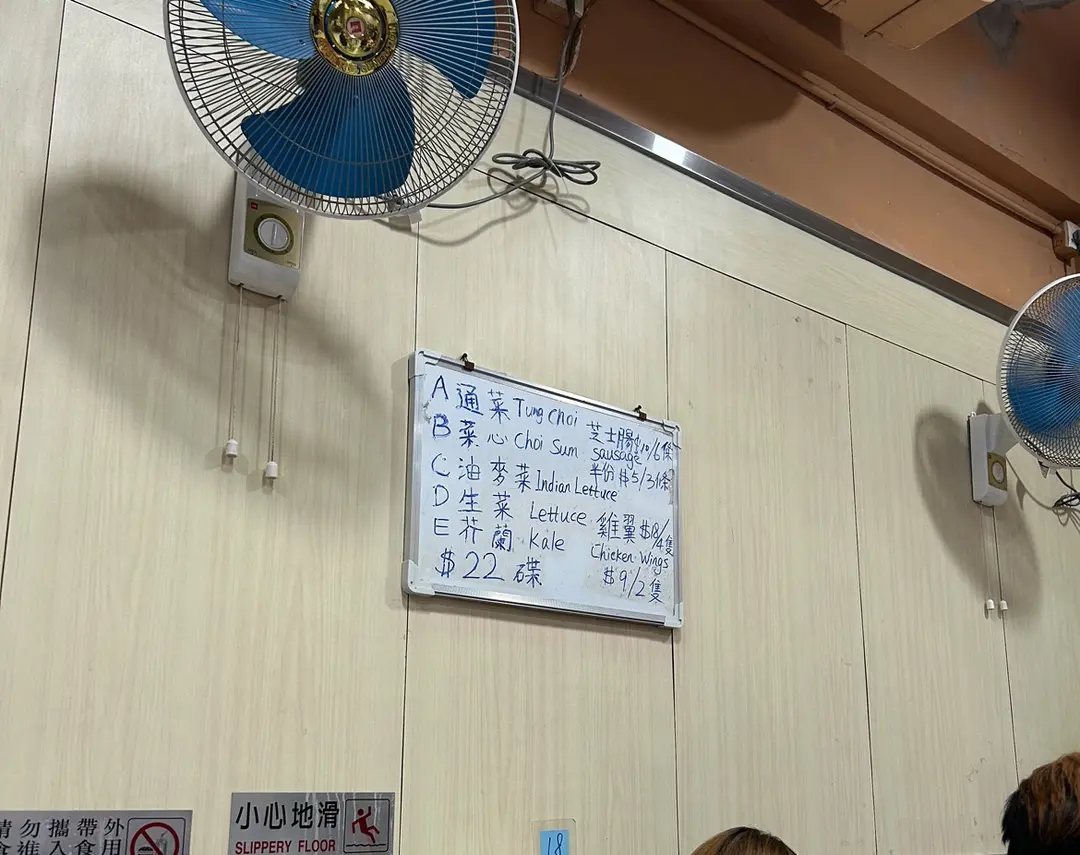 A 通菜 Tung choi
B 菜心 Choi Sum
C 油麥菜 Indian Lettuce
D 生菜 Lettuce
E 芥蘭 Kale
$22 碟
芝士腸 $10/6條
Sausage
半份 $5/3條
雞翼 $18/4隻
Chicken Wings
$9/2隻
請勿攜帶外
食進入食用
小心地滑
SLIPPERY FLOOR
18